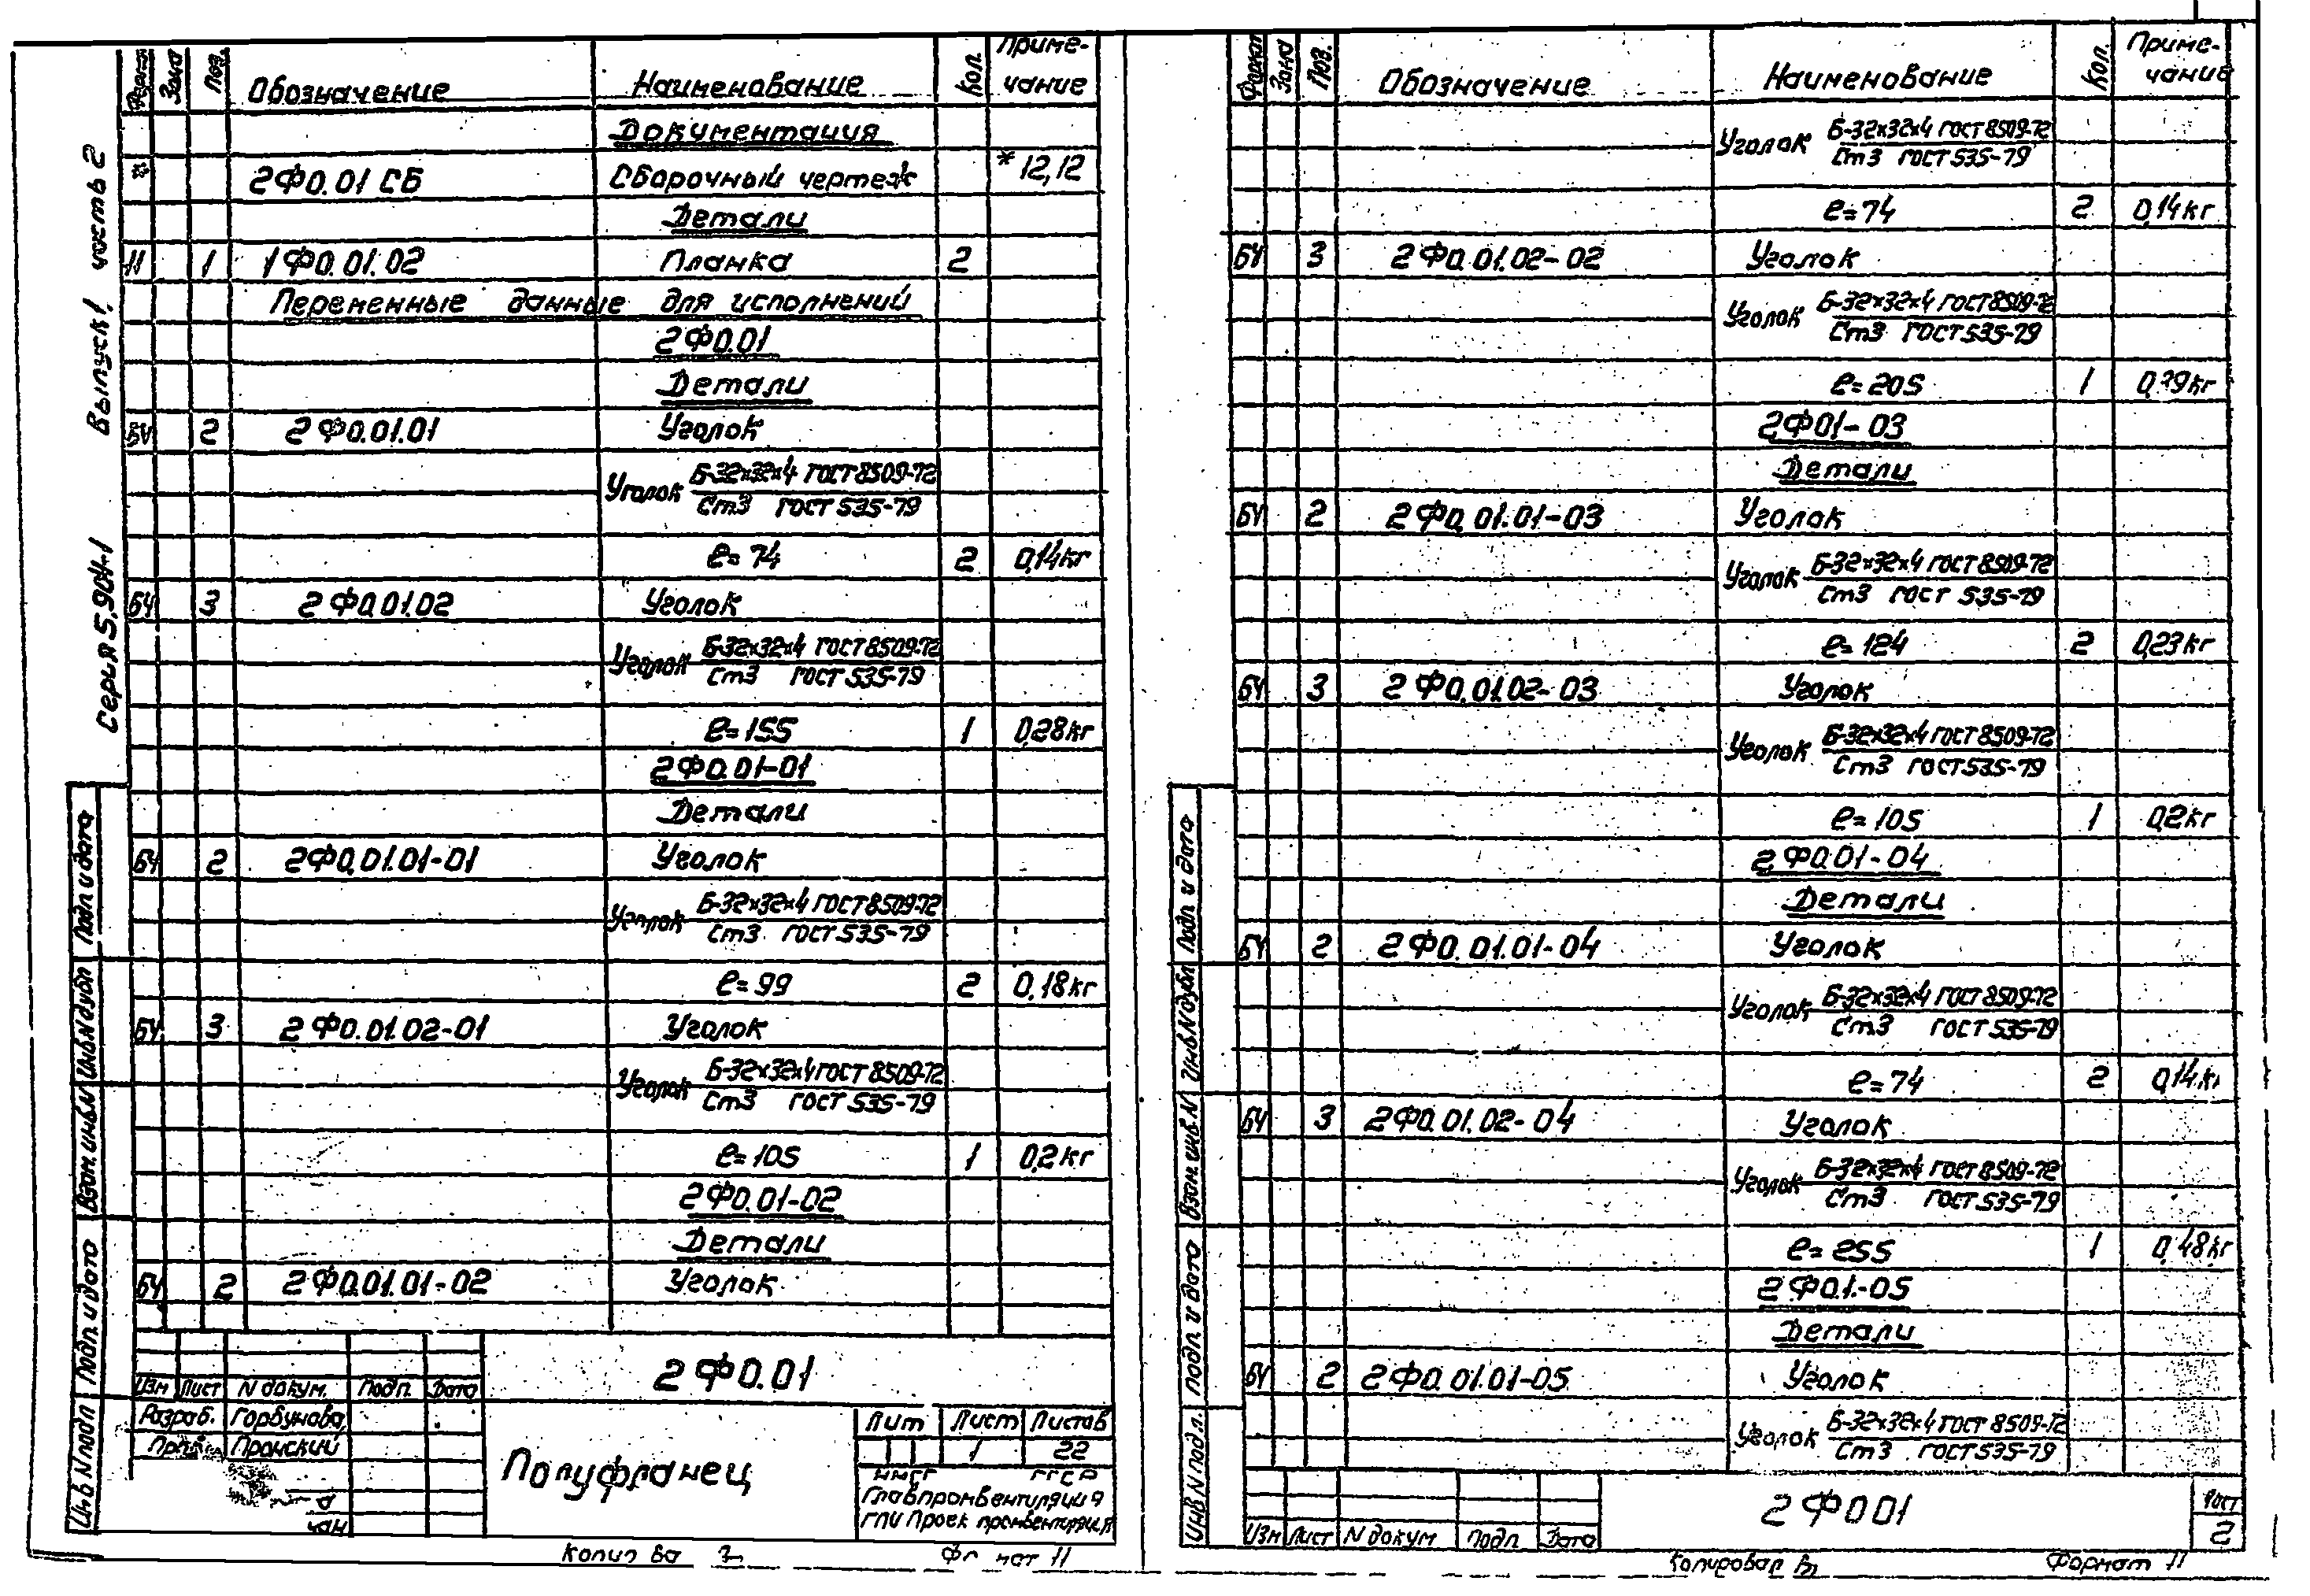 Серия 5.904-1 Выпуск 1, часть 2
Формат Зона Поз. Обозначение Наименование Кол. Приме-
чание
Документация
2Ф0.01 СБ Сборочный чертеж *12,12
Детали
11 1 1Ф0.01.02 Планка 2
Переменные данные для исполнений
2Ф0.01
Детали
БЧ 2 2Ф0.01.01 Уголок
Уголок Б-32х32х4 ГОСТ 8509-72
Ст3 ГОСТ 535-79
ℓ=74 2 0,14кг
БЧ 3 2Ф0.01.02 Уголок
Уголок Б-32х32х4 ГОСТ 8509-72
Ст3 ГОСТ 535-79
ℓ=155 1 0,28кг
2Ф0.01-01
Детали
БЧ 2 2Ф0.01.01-01 Уголок
Уголок Б-32х32х4 ГОСТ 8509-72
Ст3 ГОСТ 535-79
ℓ=99 2 0,18кг
БЧ 3 2Ф0.01.02-01 Уголок
Уголок Б-32х32х4 ГОСТ 8509-72
Ст3 ГОСТ 535-79
ℓ=105 1 0,2кг
2Ф0.01-02
Детали
БЧ 2 2Ф0.01.01-02 Уголок
2Ф0.01
Изм Лист N докум. Подп. Дата
Разраб. Горбунова
Пронский
Полуфланец
Лит Лист Листов
1 22
ММСС СССР
Главпромвентиляция
ГПИ Проектпромвентиляция
Инв N подл Подп. и дата Взам. инв. N Инв. N дубл Подп и дата
Формат 11
Формат Зона Поз. Обозначение Наименование Кол. Приме-
чание
Уголок Б-32х32х4 ГОСТ 8509-72
Ст3 ГОСТ 535-79
ℓ=74 2 0,14кг
БЧ 3 2Ф0.01.02-02 Уголок
Уголок Б-32х32х4 ГОСТ 8509-72
Ст3 ГОСТ 535-79
ℓ=205 1 0,39кг
2Ф01-03
Детали
БЧ 2 2Ф0.01.01-03 Уголок
Уголок Б-32х32х4 ГОСТ 8509-72
Ст3 ГОСТ 535-79
ℓ=124 2 0,23кг
БЧ 3 2Ф0.01.02-03 Уголок
Уголок Б-32х32х4 ГОСТ 8509-72
Ст3 ГОСТ 535-79
ℓ=105 1 0,2кг
2Ф0.01-04
Детали
БЧ 2 2Ф0.01.01-04 Уголок
Уголок Б-32х32х4 ГОСТ 8509-72
Ст3 ГОСТ 535-79
ℓ=74 2 0,14кг
БЧ 3 2Ф0.01.02-04 Уголок
Уголок Б-32х32х4 ГОСТ 8509-72
Ст3 ГОСТ 535-79
ℓ=255 1 0,48кг
2Ф0.1-05
Детали
БЧ 2 2Ф0.01.01-05 Уголок
Уголок Б-32х32х4 ГОСТ 8509-72
Ст3 ГОСТ 535-79
2Ф001
Лист
2
Изм Лист N докум Подп Дата
Инв N подл. Подп. и дата Взам. инв. N Инв. N дубл Подп и дата
Копировал Формат 11